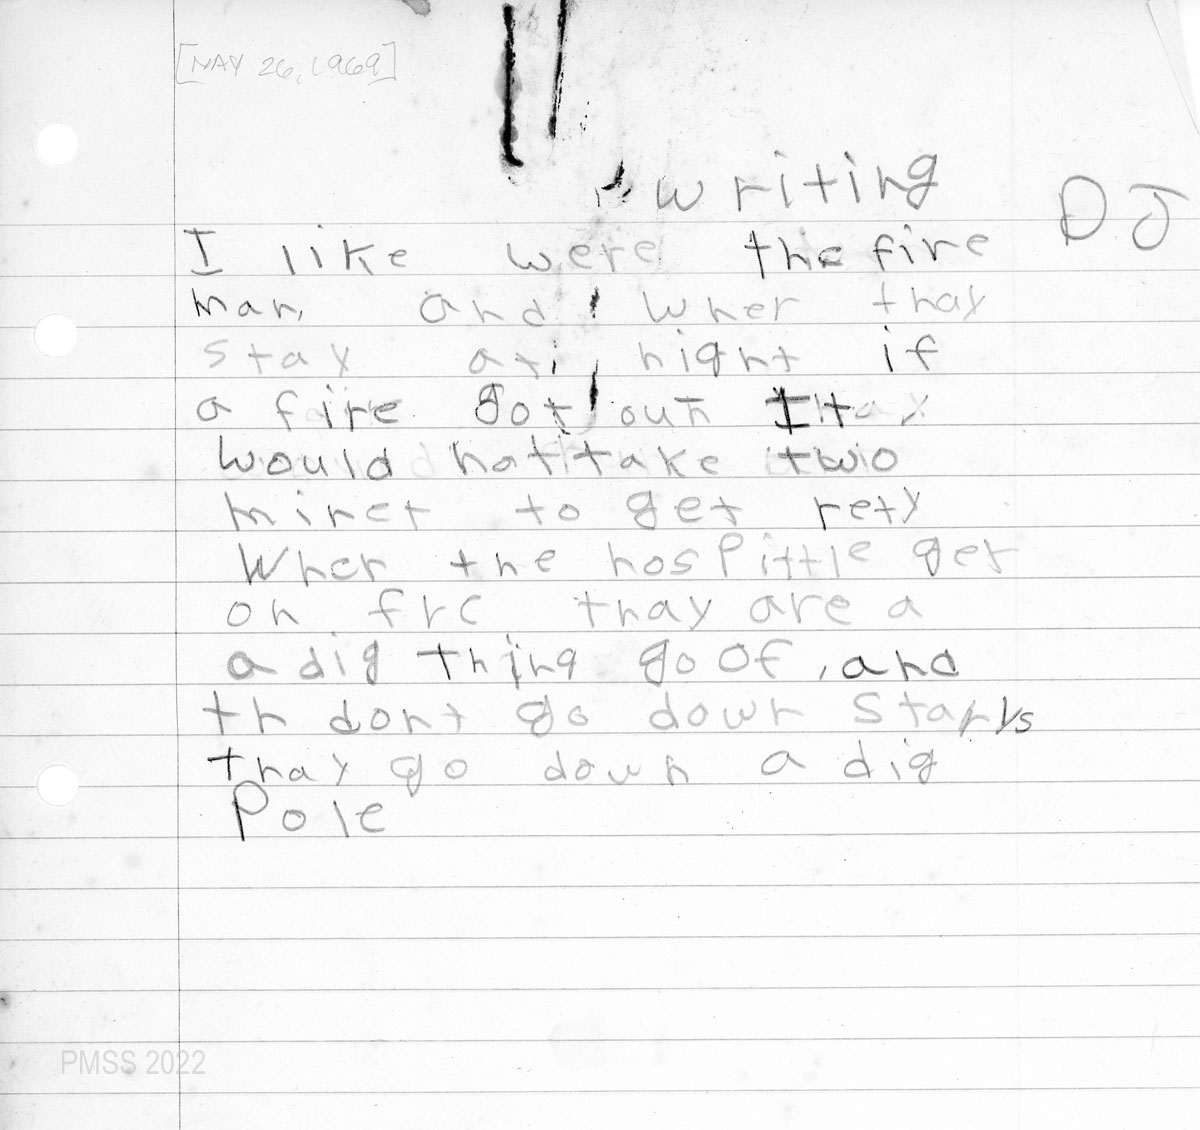 [MAY 26, 1969]
writing
DJ
I like were the fire
man and wher thay
stay at night if
a fire got out thay
would not take two
minet to get rety
Wher the hosPittle get
on fre thay are a
a dig thing go of, and
th dont go down starys
thay go down a dig
Pole
PMSS 2022